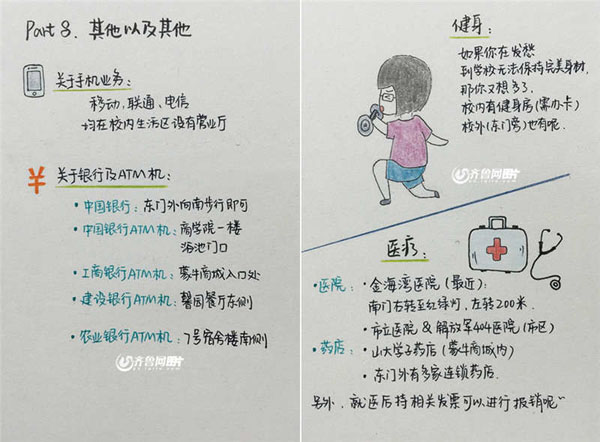 Part 8. 其他以及其他
关于手机业务:
移动,联通、电信
均在校内生活区设有营业厅
¥ 关于银行及ATM机:
·中国银行:东门外向南步行即可
·中国银行ATM机:商学院一楼
海池门口
·工商银行ATM机:蒙牛商城入口处
·建设银行ATM机:馨园餐厅东侧
·农业银行ATM机:7号宿舍楼南侧
齐鲁网图片
健身:
如果你在发愁
到学校无法保持完美身材,
那你又想多了.
校内有健身房(需办卡)
校外(东门旁)也有呢.
齐鲁网图片
医疗:
·医院:·金海湾医院(最近):
南门右转至红绿灯,左转200米.
·市立医院&解放军404医院(市区)
·药店:·山大学子药店(蒙牛商城内)
·东门外有多家连锁药店.
另外,就医后持相关发票可以进行报销呢~